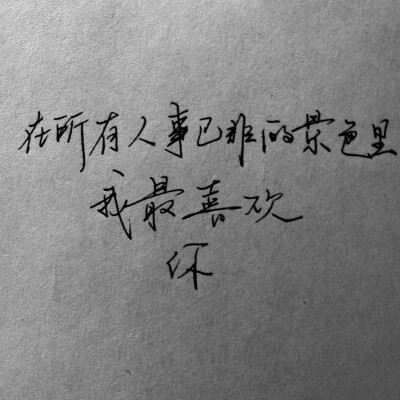 在所有人事已非的景色里
我最喜欢
你